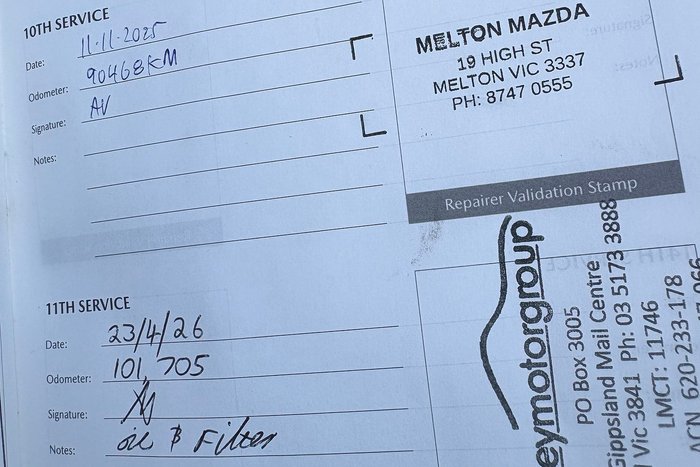 10TH SERVICE
Date: 11-11-2025
Odometer: 90468KM
Signature: AV
Notes:
MELTON MAZDA
19 HIGH ST
MELTON VIC 3337
PH: 8747 0555
Repairer Validation Stamp
11TH SERVICE
Date: 23/4/26
Odometer: 101,705
Signature:
Notes: oil & Filter
eymotorgroup
PO Box 3005
Gippsland Mail Centre
Vic 3841 Ph: 03 5173 3888
LMCT: 11746
620-233-178